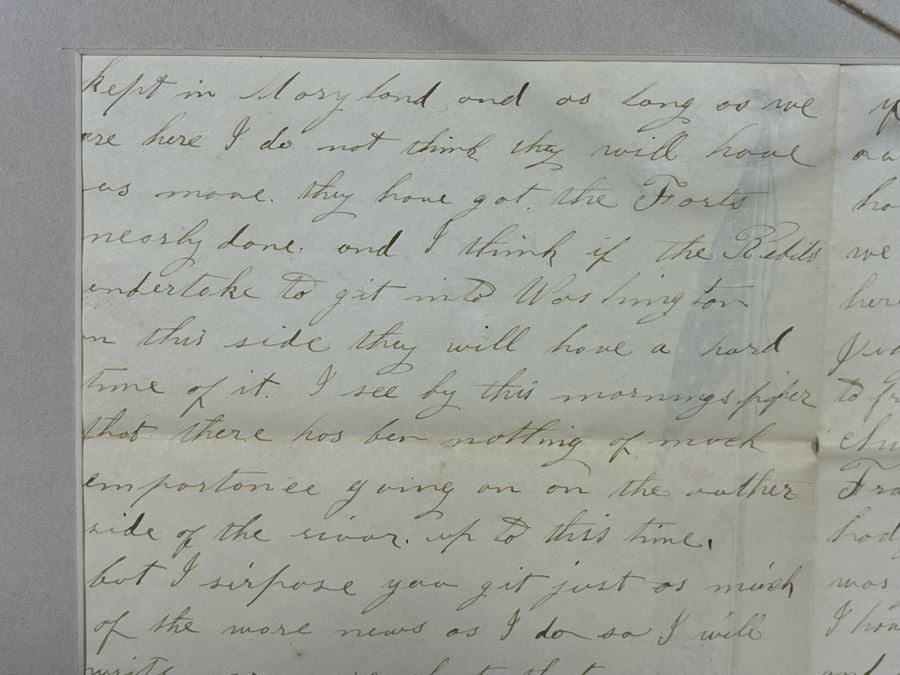 kept in Mary land and as long as we
are here I do not think they will have
us move. they have got. the Forts
nearly done. and I think if the Rebils
undertake to git into Washington
on this side they will have a hard
time of it. I see by this mornings paper
that there has ben nothing of much
importancee going on on the outher
side of the rivor. up to this time.
but I sirpose you git just as much
of the wore news as I do so I will
write
we
here
to fr
Fra
was